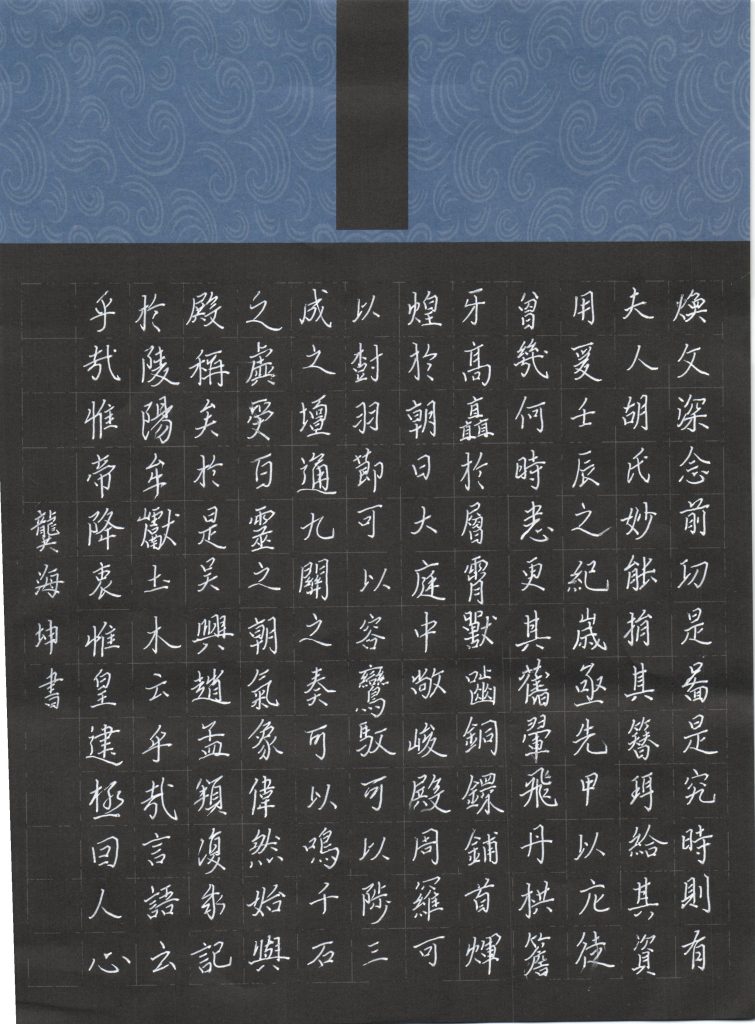 煥文深念前功是啚是究時則有
夫人胡氏妙能捐其簮珥給其資
用爰壬辰之紀嵗亟先甲以庀徒
曾幾何時悉更其舊翬飛丹栱簷
牙髙矗於層霄獸齧銅鐶鋪首輝
煌於朝日大庭中敞峻殿周羅可
以樹羽節可以容鸞馭可以陟三
成之壇通九關之奏可以鳴千石
之虡受百靈之朝氣象偉然始與
殿稱矣於是吴興趙孟頫復求記
於陵陽牟巘土木云乎㢤言語云
乎㢤惟帝降衷惟皇建極曰人心
龔海坤書